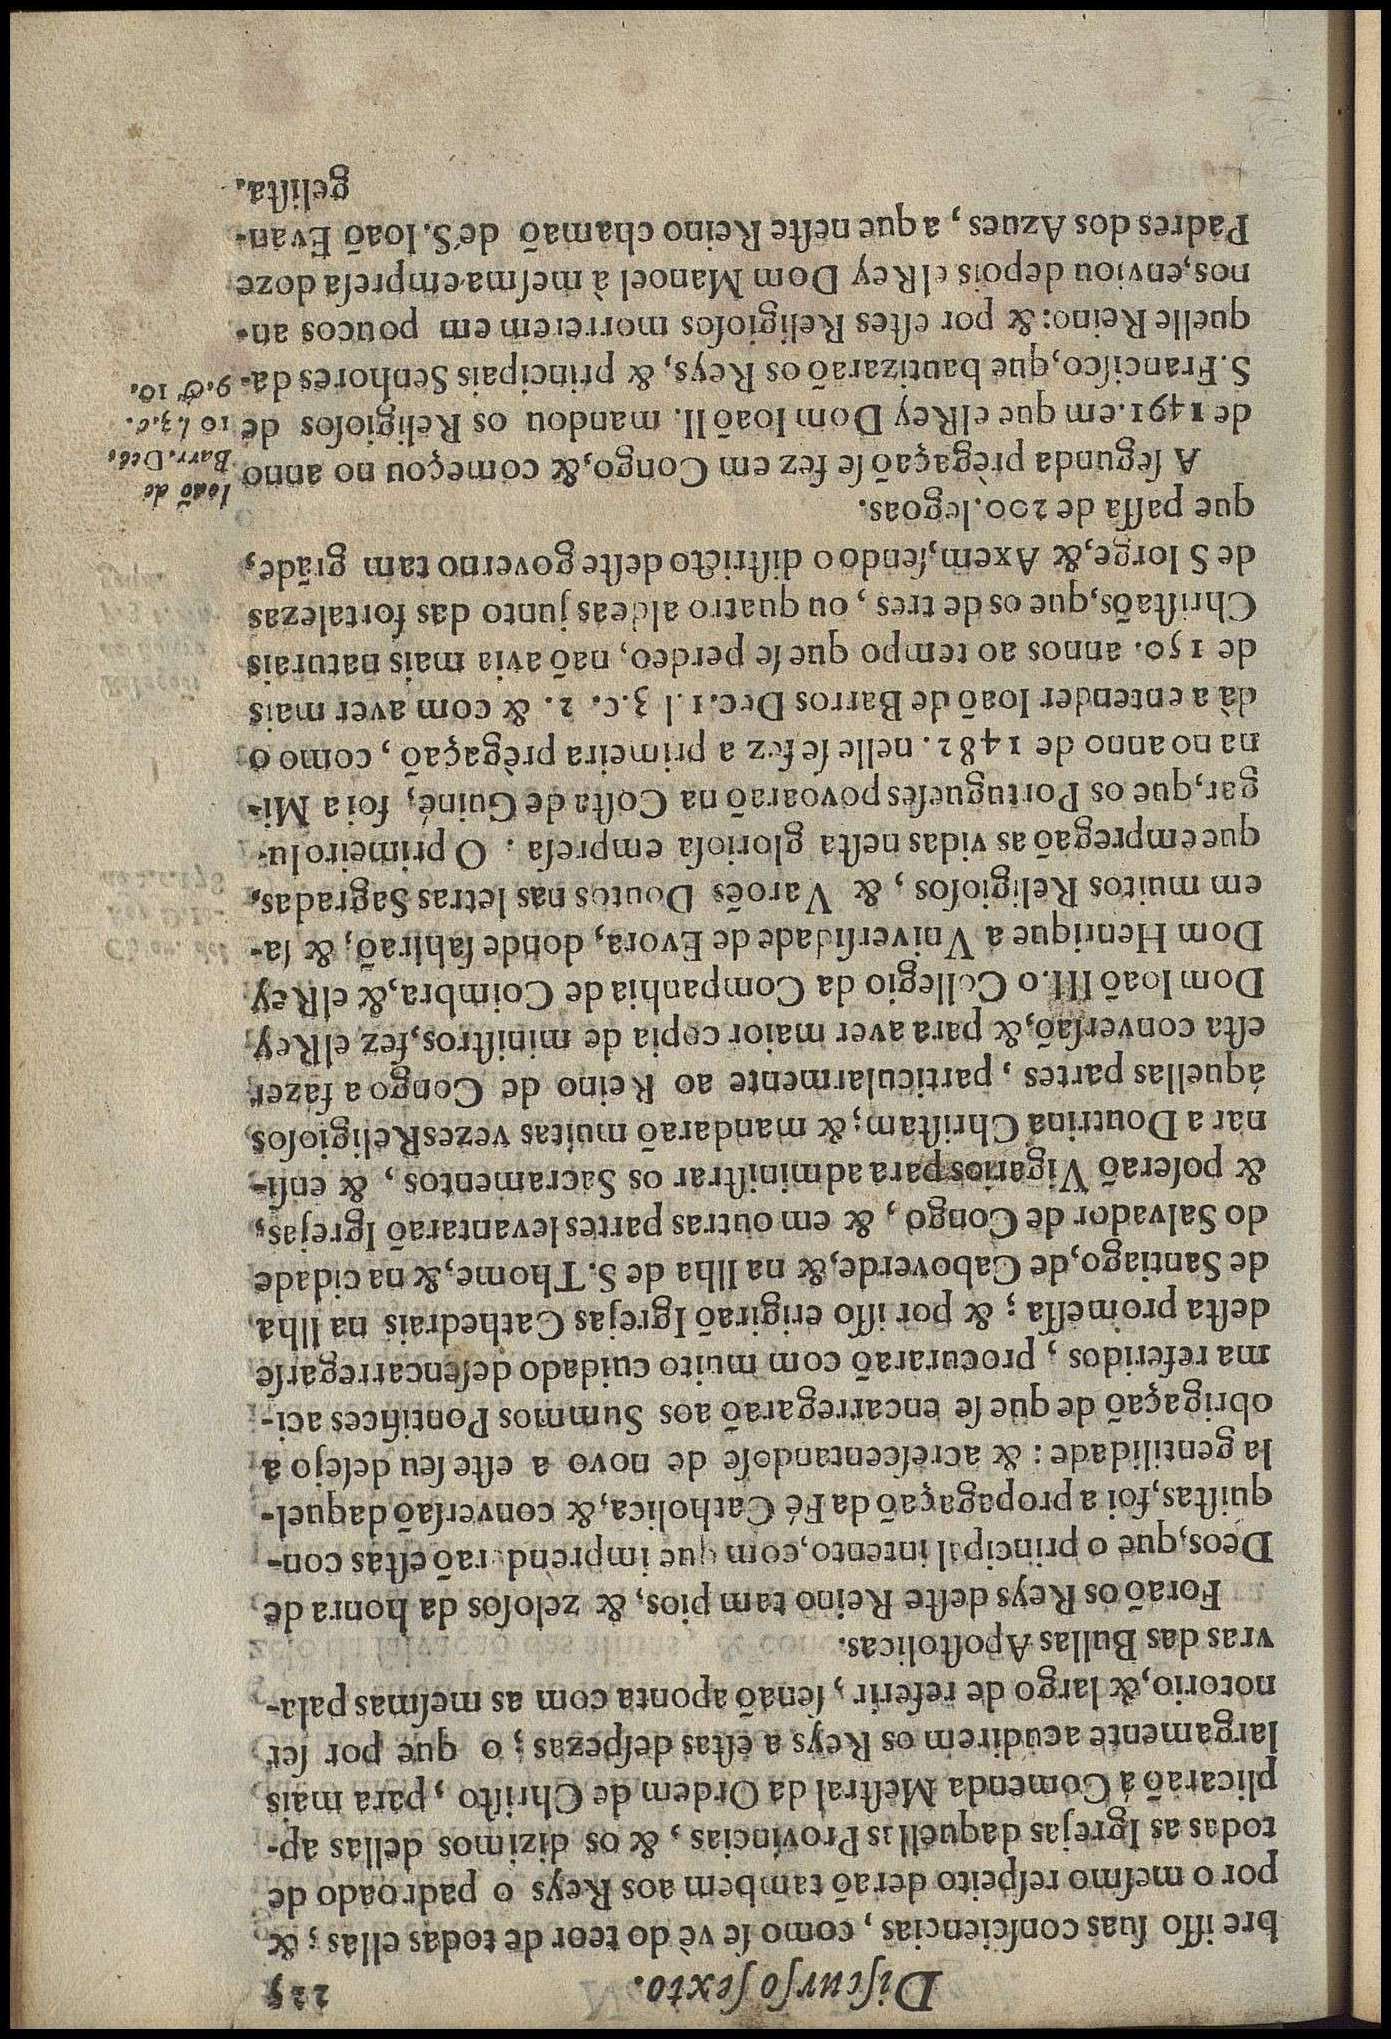 Diſcurſo ſexto. 225
bre iſſo ſuas conſciencias, como ſe vè do teor de todas ellas; &
por o meſmo reſpeito deraõ tambem aos Reys o padroado de
todas as Igrejas daquellas Provincias, & os dizimos dellas ap-
plicaraõ á Comenda Meſtral da Ordem de Chriſto, para mais
largamente acudirem os Reys a eſtas deſpezas; o que por ſer
notorio, & largo de referir, ſenaõ aponta com as meſmas pala-
vras das Bullas Apoſtolicas.
Foraõ os Reys deſte Reino tam pios, & zeloſos da honra de
Deos, que o principal intento, com que imprènderaõ eſtas con-
quiſtas, foi a propagaçaõ da Fé Catholica, & converſaõ daquel-
la gentilidade: & acreſcentandoſe de novo a eſte ſeu deſejo a
obrigaçaõ de que ſe encarregaraõ aos Summos Pontifices aci-
ma referidos, procuraraõ com muito cuidado deſencarregarſe
deſta promeſſa; & por iſſo erigiraõ Igrejas Cathedrais na Ilha
de Santiago, de Caboverde, & na Ilha de S. Thome, & na cidade
do Salvador de Congo, & em outras partes levantaraõ Igrejas,
& poſeraõ Vigarios para adminiſtrar os Sacramentos, & enſi-
nar a Doutrina Chriſtam; & mandaraõ muitas vezes Religioſos
áquellas partes, particularmente ao Reino de Congo a fazer
eſta converſaõ, & para aver maior copia de miniſtros, fez elRey
Dom Ioaõ III. o Collegio da Companhia de Coimbra, & elRey
Dom Henrique a Vniverſidade de Evora, donde ſahiraõ, & ſa-
em muitos Religioſos, & Varoẽs Doutos nas letras Sagradas,
que empregaõ as vidas neſta glorioſa empreſa. O primeiro lu-
gar, que os Portugueſes povoaraõ na Coſta de Guiné, foi a Mi-
na no anno de 1482. nelle ſe fez a primeira prègaçaõ, como o
dà a entender Ioaõ de Barros Dec. 1. l 3. c. 2. & com aver mais
de 150. annos ao tempo que ſe perdeo, naõ avia mais naturais
Chriſtaõs, que os de tres, ou quatro aldeas junto das fortalezas
de S Iorge, & Axem, ſendo o diſtricto deſte governo tam grãde,
que paſſa de 200. legoas.
A ſegunda prègaçaõ ſe fez em Congo, & começou no anno
de 1491. em que elRey Dom Ioaõ II. mandou os Religioſos de
S. Franciſco, que bautizaraõ os Reys, & principais Senhores da-
quelle Reino: & por eſtes Religioſos morrerem em poucos an-
nos, enviou depois elRey Dom Manoel à meſma empreſa doze
Padres dos Azues, a que neſte Reino chamaõ de S. Ioaõ Evan-
geliſta.
Ioaõ de
Barr. Dec.
10 l. 3. c.
9. & 10.